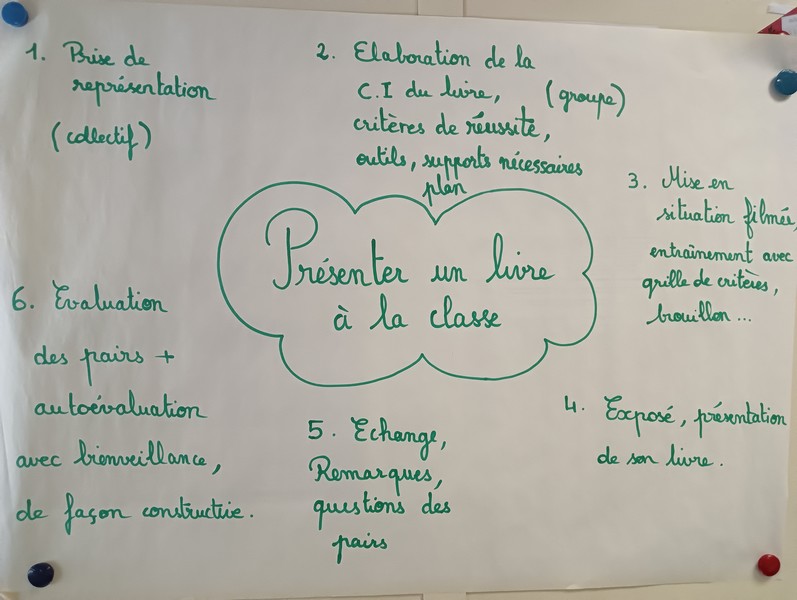 1. Prise de
représentation
(collectif)
2. Elaboration de la
C.I du livre, (groupe)
critères de réussite,
outils, supports nécessaires
plan
3. Mise en
situation filmée,
entraînement avec
grille de critères,
brouillon ...
Présenter un livre
à la classe
4. Exposé, présentation
de son livre.
5. Echange,
Remarques,
questions des
pairs
6. Evaluation
des pairs +
autoévaluation
avec bienveillance,
de façon constructive.